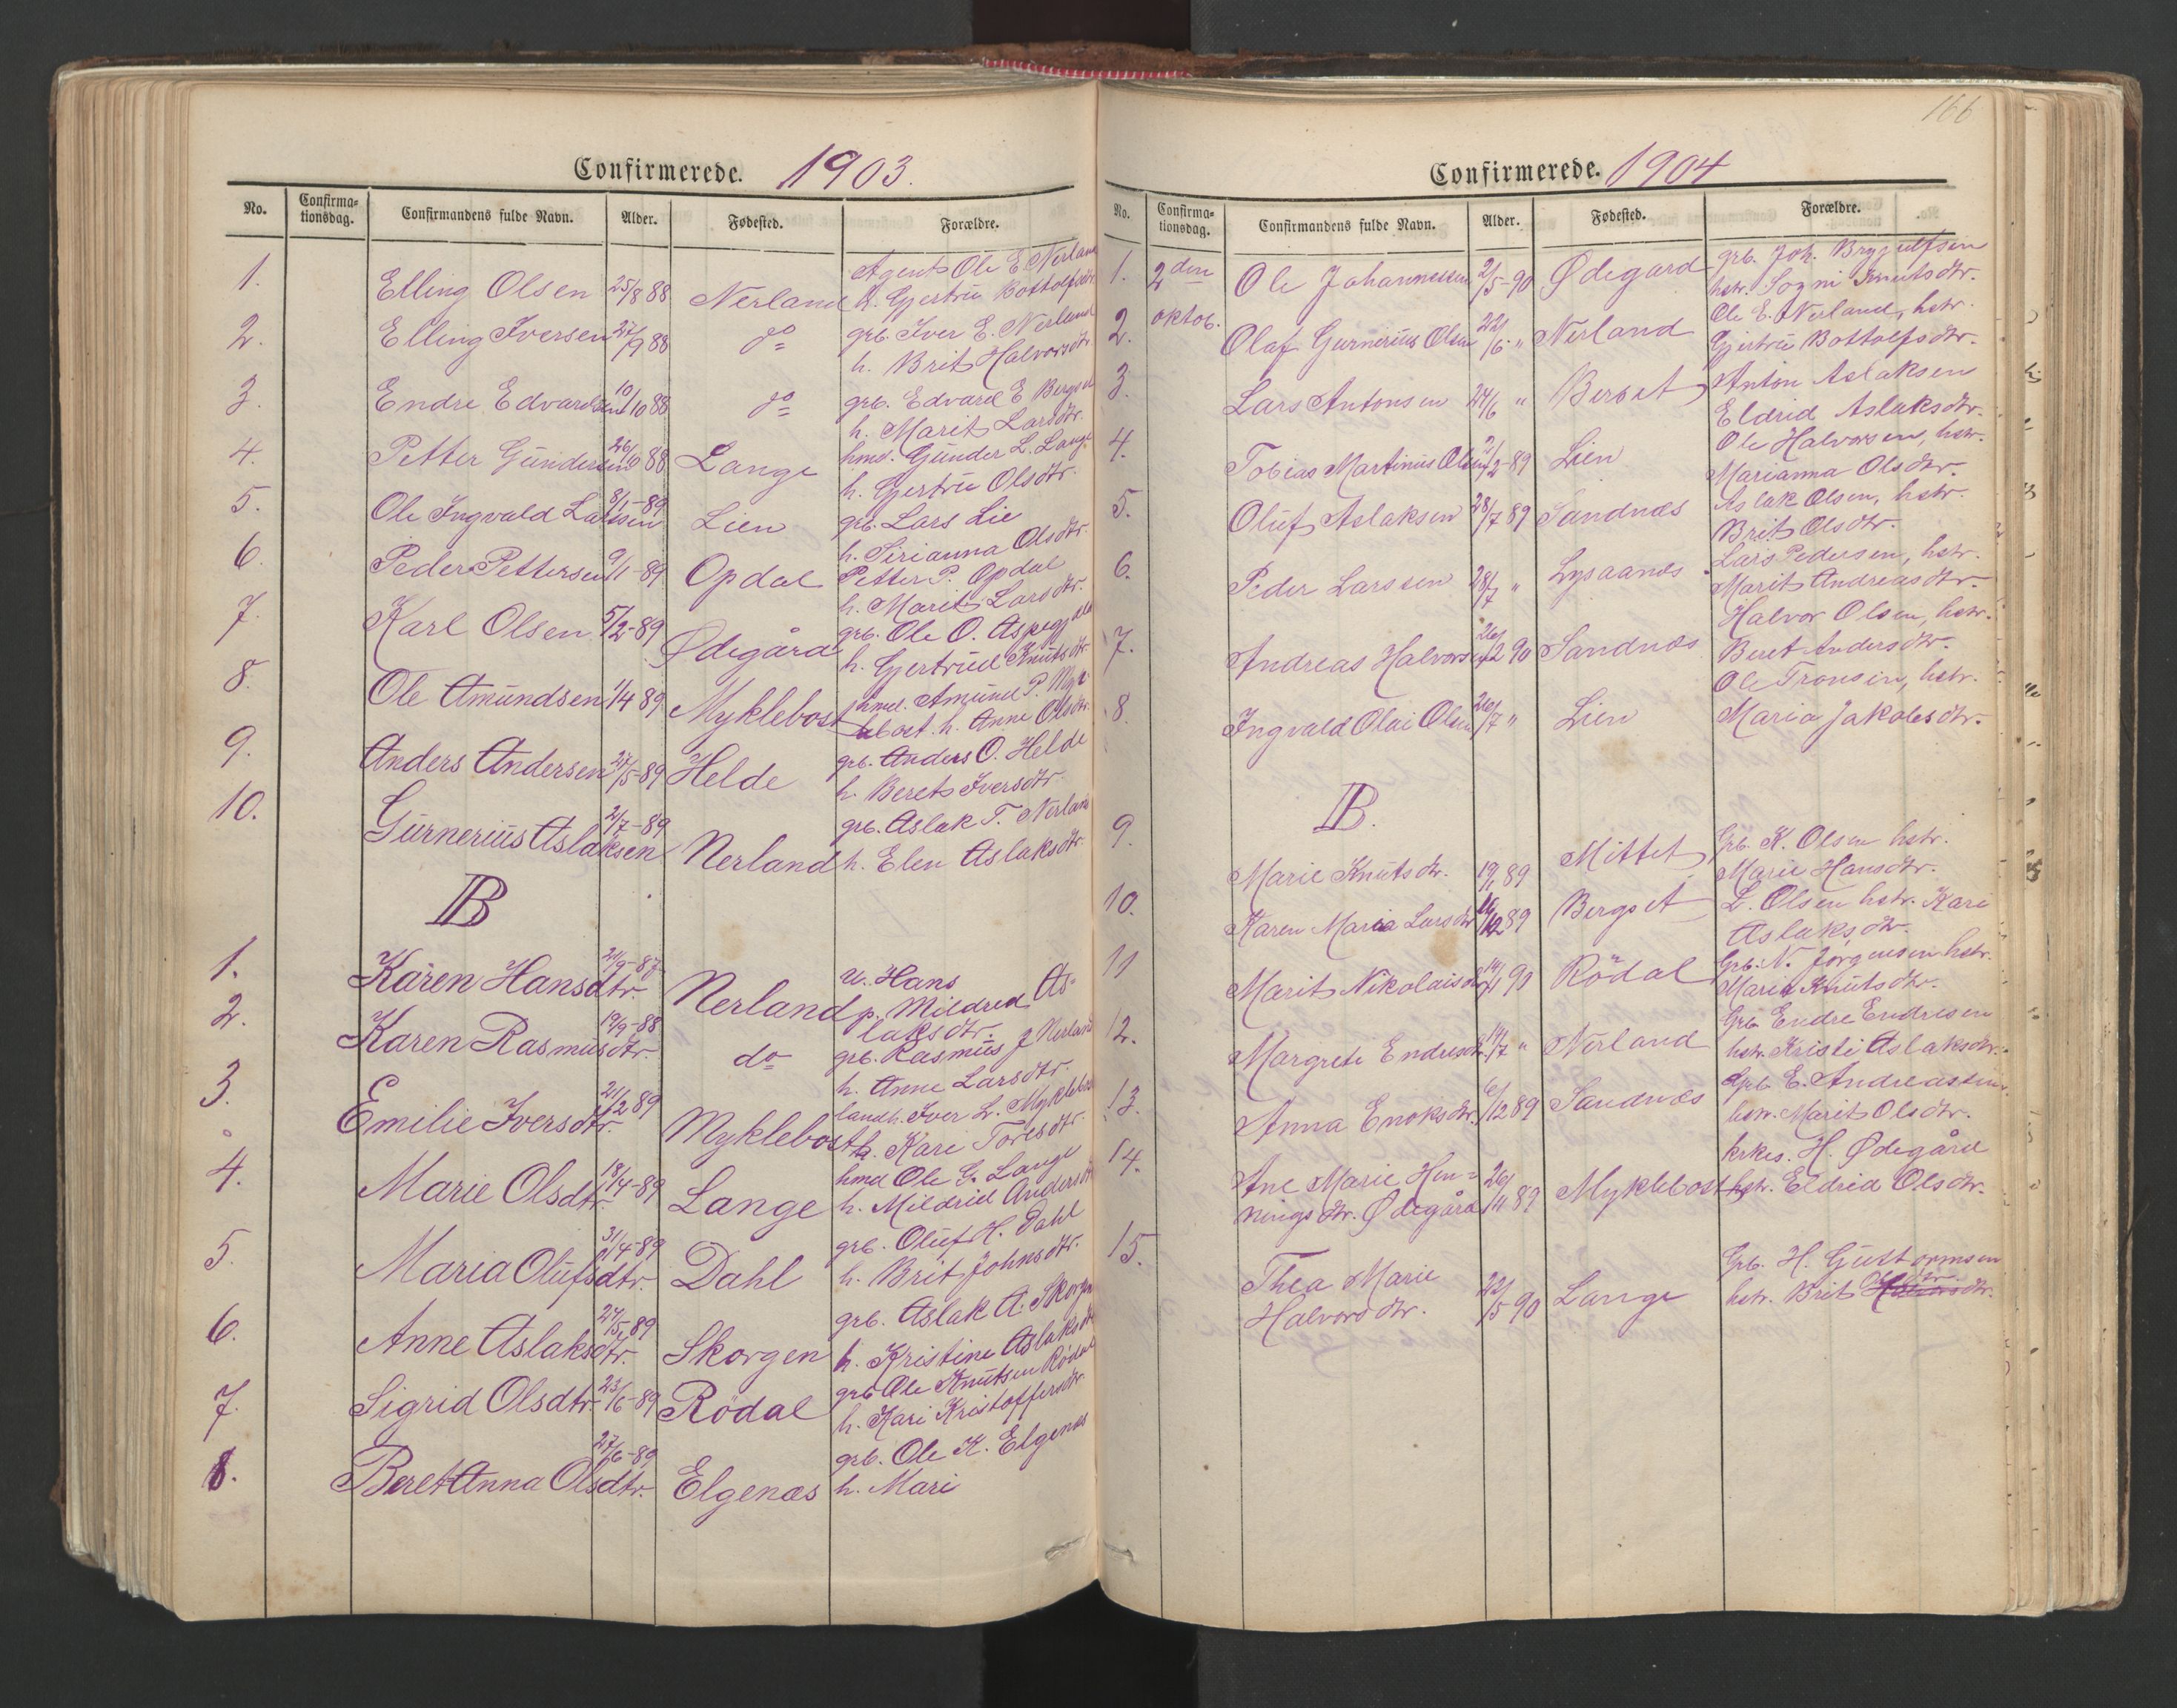 Confirmerede. 1903.
No. Confirma-tionsdag. Confirmandens fulde Navn. Alder. Fødested. Forældre.
1. Elling Olsen 25/8 88 Nerland Agent Ole E. Nerland
h. Gjertrü Bottolfsdtr.
2. Elling Iversen 27/9 88 do grb. Iver E. Nerland
h. Brit Halvorsdtr.
3. Endre Edvardsen 10/10 88 do grb. Edvard E. Bergset
h. Marit Larsdtr.
4. Petter Gündersen 26/10 88 Lange hmd. Günder L. Lange
h. Gjertrü Olsdtr.
5. Ole Ingvald Larssen 8/1-89 Lien grb. Lars Lie
h. Sirianna Olsdtr.
6. Peder Pettersen 9/1-89 Opdal Petter P. Opdal
h. Marit Larsdtr.
7. Karl Olsen 5/2-89 Ødegård grb. Ole O.
h. Gjertrüd Knütsdtr.
8. Ole Amündsen 1/4 89 Myklebost hmd. Amünd P. Myk-
lebost. h. Anne Olsdtr.
9. Anders Andersen 27/5-89 Helde grb. Anders O. Helde
h. Beret Iversdtr.
10. Gürnerius Aslaksen 2/7-89 Nerland grb. Aslak T. Nerland
h. Elen Aslaksdtr.
B
1. Karen Hansdtr. 21/9-87 Nerland u. Hans
p. Mildrid As-
laksdtr.
2. Karen Rasmüsdtr. 19/9-88 do grb. Rasmüs J. Nerland
h. Anne Larsdtr.
3. Emilie Iversdtr. 21/2 89 Myklebost landh. Iver L. Myklebost
h. Kari Toresdtr.
4. Marie Olsdtr. 18/4-89 Lange hmd Ole G. Lange
h. Mildrid Andersdtr
5. Maria Olüfsdtr. 31/4-89 Dahl grb. Olüf H. Dahl
h. Brit Johnsdtr.
6. Anne Aslaksdtr. 27/5 89 Skorgen grb. Aslak A. Skorgen
h. Kristine Aslaksdtr
7. Sigrid Olsdtr. 23/6-89 Rödal grb Ole Knütsen Rödal
h. Kari Kristoffersdtr.
8. Beret Anna Olsdtr. 27/6-89 Elgenæs grb. Ole K. Elgenæs
h. Mari
166
Confirmerede. 1904
No. Confirma-tionsdag. Confirmandens fulde Navn. Alder. Fødested. Forældre.
1. 2den oktob. Ole Johannessen 2/5-90 Ødegard grb. Joh. Brynjulfsen
hstr. Sogni Knutsdtr.
2. Olaf Gurnerius Olsen 22/6 " Nerland Ole E. Nerland, hstr.
Gjertrü Bottolfsdtr.
3. Lars Antonsen 24/6 " Berset Anton Aslaksen
Eldrid Aslaksdtr.
4. Tobias Martinius Olsen /2-89 Lien Ole Halvorsen, hstr.
Marianna Olsdtr.
5. Olüf Aslaksen 28/7 89 Sandnæs Aslak Olsen, hstr.
Brit Olsdtr.
6. Peder Larssen 28/7 " Lysaanæs Lars Pedersen, hstr.
Marit Andreasdtr.
7. Andreas Halvorsen 26/2 90 Sandnæs Halvor Olsen, hstr.
Beret Andersdtr.
8. Ingvald Olai Olsen 20/7 " Lien Ole Tronsen, hstr.
Maria Jakobsdtr.
B.
9. Marie Knütsdtr. 19/1 89 Mittet Grb. K. Olsen hstr.
Marie Hansdtr.
10. Karen Maria Larsdtr 12 89 Bergset L. Olsen hstr. Kari
Aslaksdtr.
11 Marit Nikolaisdtr 90 Rödal Grb. N. Jørgensen hstr.
Marit Knütsdtr.
12. Margrete Endresdtr. 14/7 " Nerland Grb Endre Endresen
hstr. Kristi Aslaksdtr.
13. Anna Enoksdtr. 6/12 89 Sandnæs Grb E. Andreassen
hstr. Marit Olsdtr.
14. Ane Marie Hen-
ningsdtr. Ødegård 26/11 89 Myklebost krkes. H. Ødegård
hstr. Eldrid Olsdtr.
15. Thea Marie
Halvorsdtr. 22/5 90 Lange Grb. H. Güttormsen
hstr. Brit Halvorsdtr.